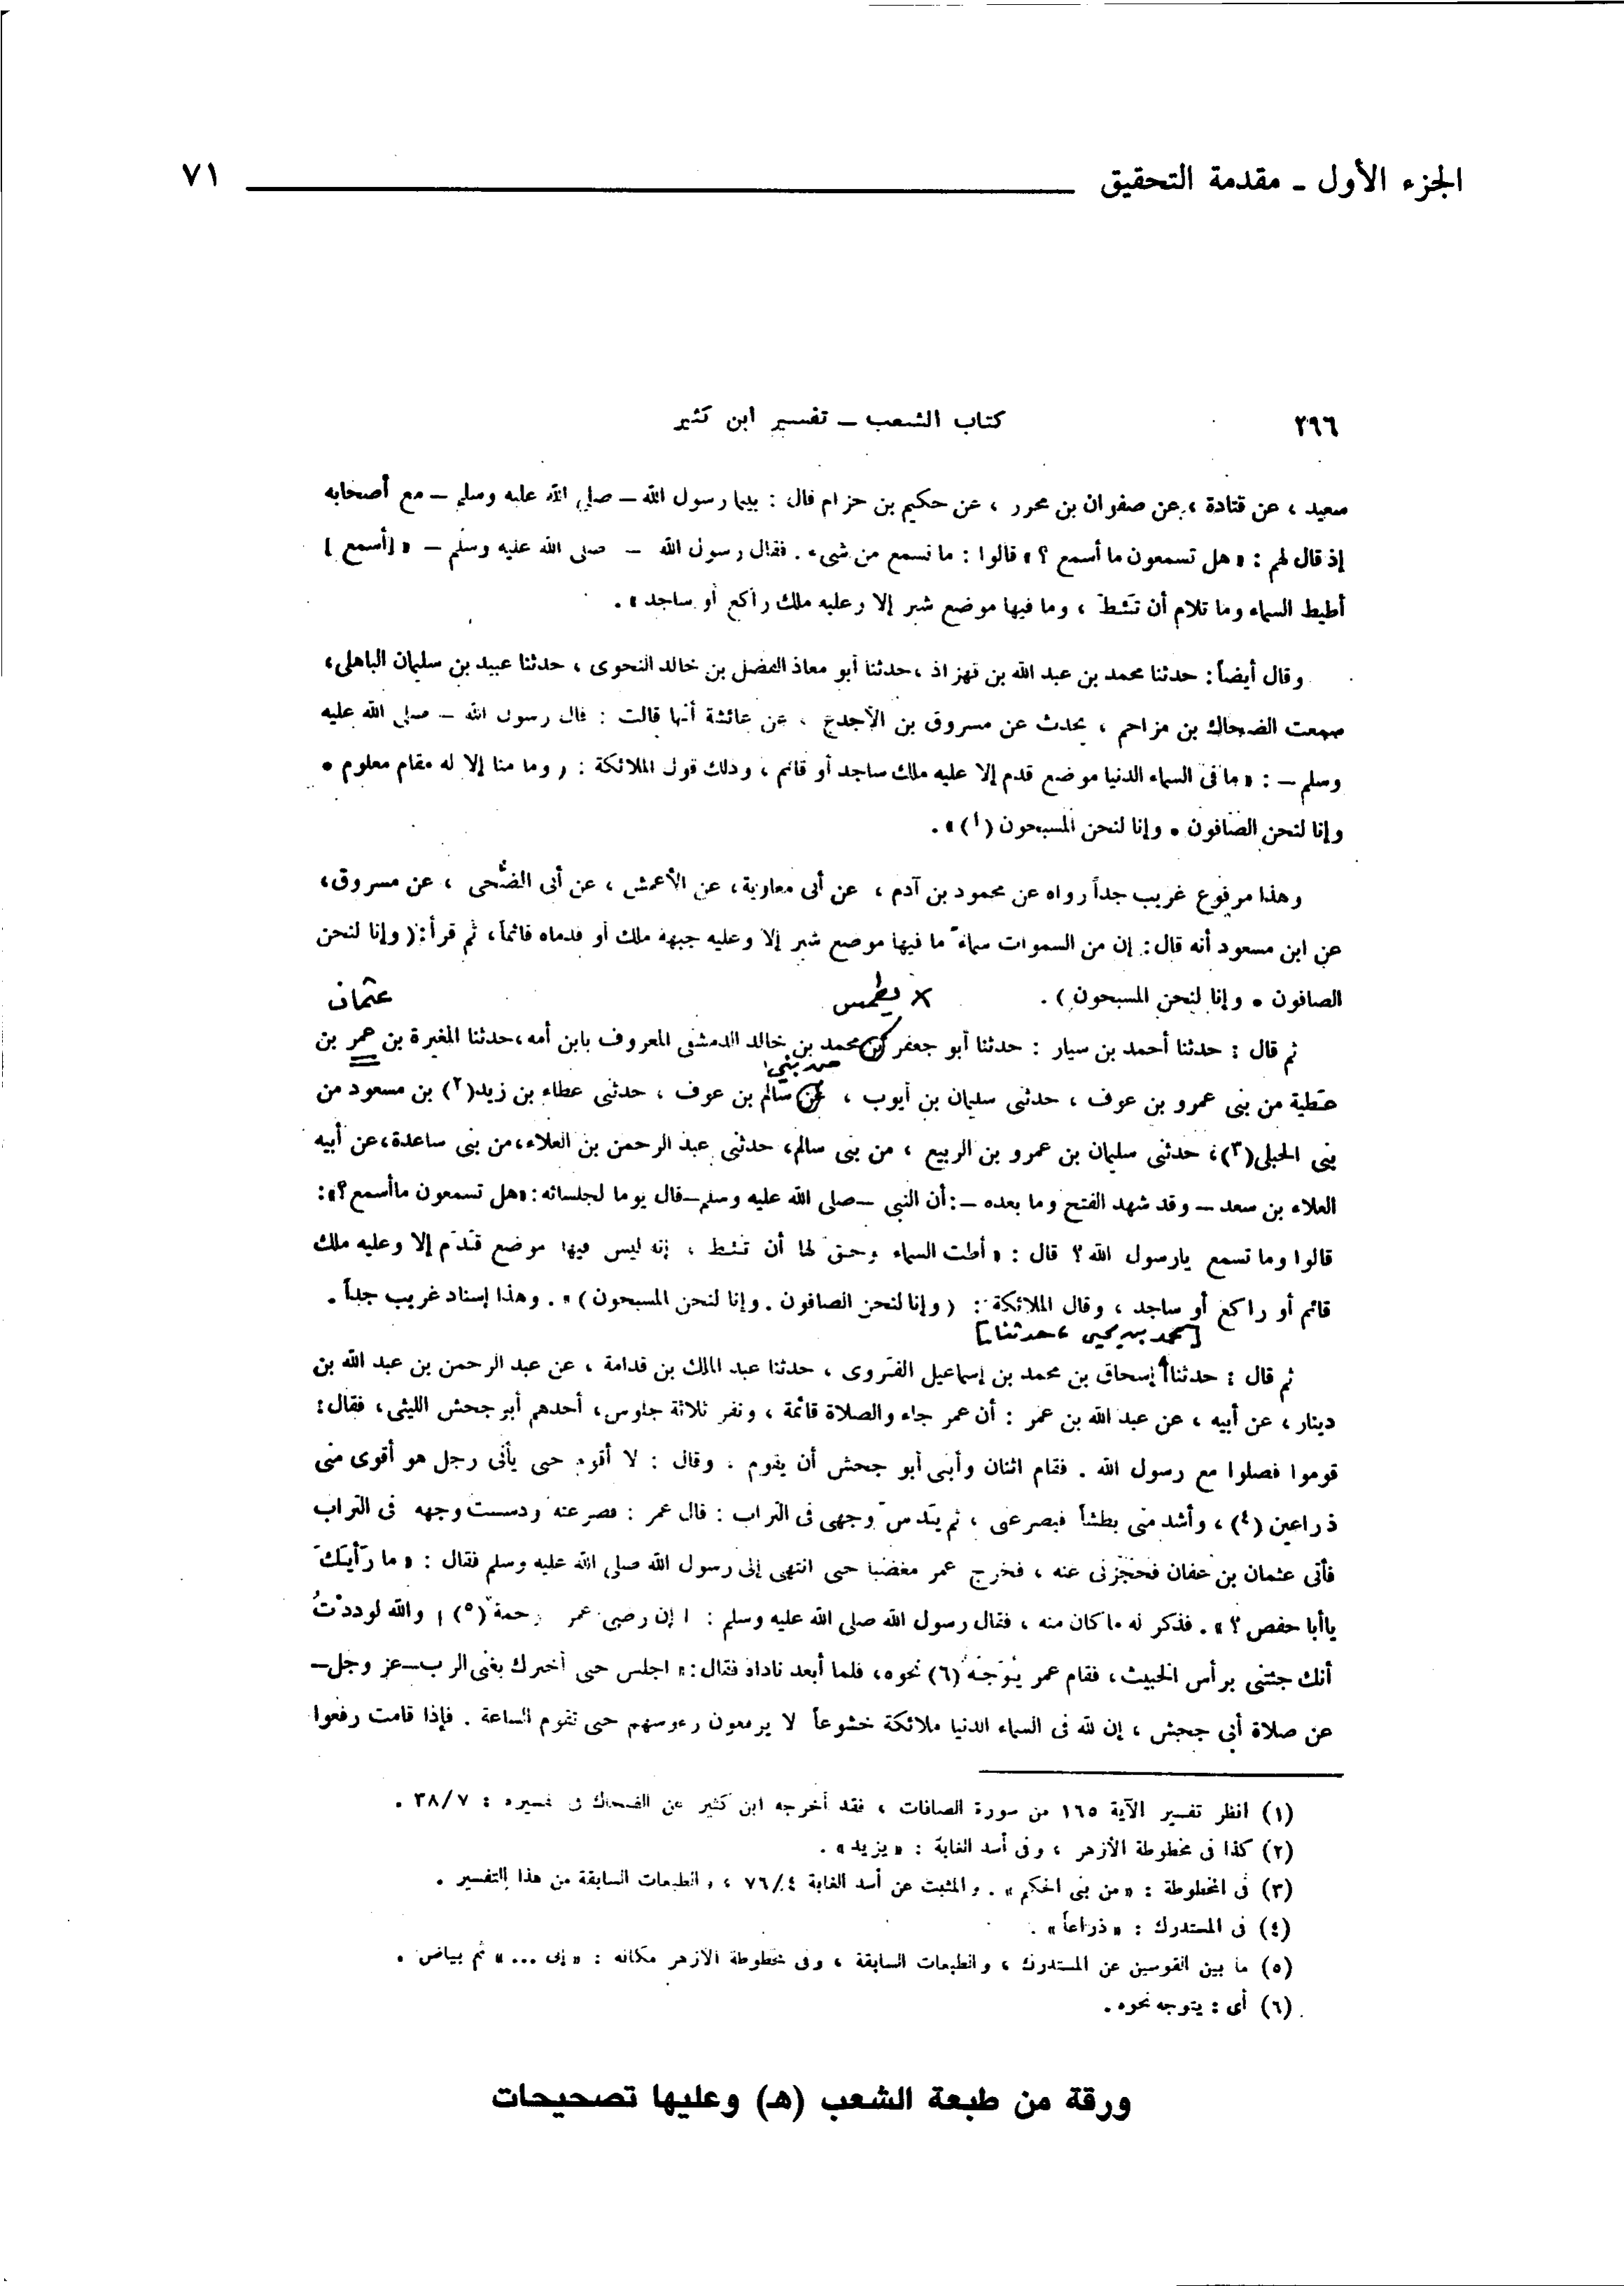 الجزء الأول ـ مقدمة التحقيق ٧١
٢٩٦ كتاب الشعب ــ تفسير ابن كثير
سعيد ، عن قتادة ، عن صفوان بن محرر ، عن حكيم بن حزام قال : بينا رسول الله ــ صلى الله عليه وسلم ــ مع أصحابه
إذ قال لهم : « هل تسمعون ما أسمع ؟ » قالوا : ما نسمع من شيء . فقال رسول الله ــ صلى الله عليه وسلم ــ « [أسمع ]
أطيط السماء وما تلام أن تَئط ، وما فيها موضع شبر إلا وعليه ملك راكع أو ساجد » .
وقال أيضاً : حدثنا محمد بن عبد الله بن قهزاذ ، حدثنا أبو معاذ الفضل بن خالد النحوى ، حدثنا عبيد بن سليمان الباهلى ،
سمعت الضحاك بن مزاحم ، يحدث عن مسروق بن الأجدع ، عن عائشة أنها قالت : قال رسول الله ــ صلى الله عليه
وسلم ــ : « ما فى السماء الدنيا موضع قدم إلا عليه ملك ساجد أو قائم ، وذلك قول الملائكة : ( وما منا إلا له مقام معلوم •
وإنا لنحن الصافون • وإنا لنحن المسبحون (١) » .
وهذا مرفوع غريب جداً رواه عن محمود بن آدم ، عن أبى معاوية ، عن الأعمش ، عن أبى الضُّحى ، عن مسروق ،
عن ابن مسعود أنه قال : إن من السموات سماءً ما فيها موضع شبر إلا وعليه جبهة ملك أو قدماه قائماً ، ثم قرأ : ( وإنا لنحن
الصافون • وإنا لنحن المسبحون ) . × يطمس عثمان
ثم قال : حدثنا أحمد بن سيار : حدثنا أبو جعفر بن محمد بن خالد الدمشقى المعروف بابن أمه ، حدثنا المغيرة بن عمر بن
حدثني
عطية من بنى عمرو بن عوف ، حدثنى سليمان بن أيوب ، عن سالم بن عوف ، حدثنى عطاء بن زيد(٢) بن مسعود من
بنى الحبلى(٣) ، حدثنى سليمان بن عمرو بن الربيع ، من بنى سالم ، حدثنى عبد الرحمن بن العلاء ، من بنى ساعدة ، عن أبيه
العلاء بن سعد ــ وقد شهد الفتح وما بعده ــ : أن النبي ــ صلى الله عليه وسلم ــ قال يوما لجلسائه : « هل تسمعون ما أسمع ؟ » :
قالوا وما تسمع يا رسول الله ؟ قال : « أطت السماء وحق لها أن تئط ، إنه ليس فيها موضع قَدَم إلا وعليه ملك
قائم أو راكع أو ساجد ، وقال الملائكة : ( وإنا لنحن الصافون . وإنا لنحن المسبحون ) » . وهذا إسناد غريب جداً .
[محمد بن يحيى ، حدثنا]
ثم قال : حدثنا إسحاق بن محمد بن إسماعيل الفَروى ، حدثنا عبد الملك بن قدامة ، عن عبد الرحمن بن عبد الله بن
دينار ، عن أبيه ، عن عبد الله بن عمر : أن عمر جاء والصلاة قائمة ، ونفر ثلاثة جلوس ، أحدهم أبو جحش الليثى ، فقال :
قوموا فصلوا مع رسول الله . فقام اثنان وأبى أبو جحش أن يقوم ، وقال : لا أقوم حتى يأتى رجل هو أقوى منى
ذراعين (٤) ، وأشد منى بطشاً فيصرعنى ، ثم يَدس وجهى فى التراب : قال عمر : فصرعته ودسست وجهه فى التراب
فأتى عثمان بن عفان فحَجَزنى عنه ، فخرج عمر مغضبا حتى انتهى إلى رسول الله صلى الله عليه وسلم فقال : « ما رَأيُكَ
يا أبا حفص ؟ » . فذكر له ما كان منه ، فقال رسول الله صلى الله عليه وسلم : « إن رضى عمر رحمة (٥) ، والله لوددْتُ
أنك جئتنى برأس الخبيث ، فقام عمر يُوَجّه (٦) نحوه ، فلما أبعد ناداه فقال : « اجلس حتى أخبرك بغنى الرب ــ عز وجل ــ
عن صلاة أبى جحش ، إن لله فى السماء الدنيا ملائكة خشوعاً لا يرفعون رءوسهم حتى تقوم الساعة . فإذا قامت رفعوا
(١) انظر تفسير الآية ١٦٥ من سورة الصافات ، فقد أخرجه ابن كثير عن الضحاك فى تفسيره : ٣٨/٧ .
(٢) كذا فى مخطوطة الأزهر ، وفى أسد الغابة : « يزيد » .
(٣) فى المخطوطة : « من بنى الحكم » . والمثبت عن أسد الغابة ٧٦/٤ ، والطبعات السابقة من هذا التفسير .
(٤) فى المستدرك : « ذراعاً » .
(٥) ما بين القوسين عن المستدرك ، والطبعات السابقة ، وفى مخطوطة الأزهر مكانه : « إلى ... » ثم بياض .
(٦) أى : يتوجه نحوه .
ورقة من طبعة الشعب (هـ) وعليها تصحيحات